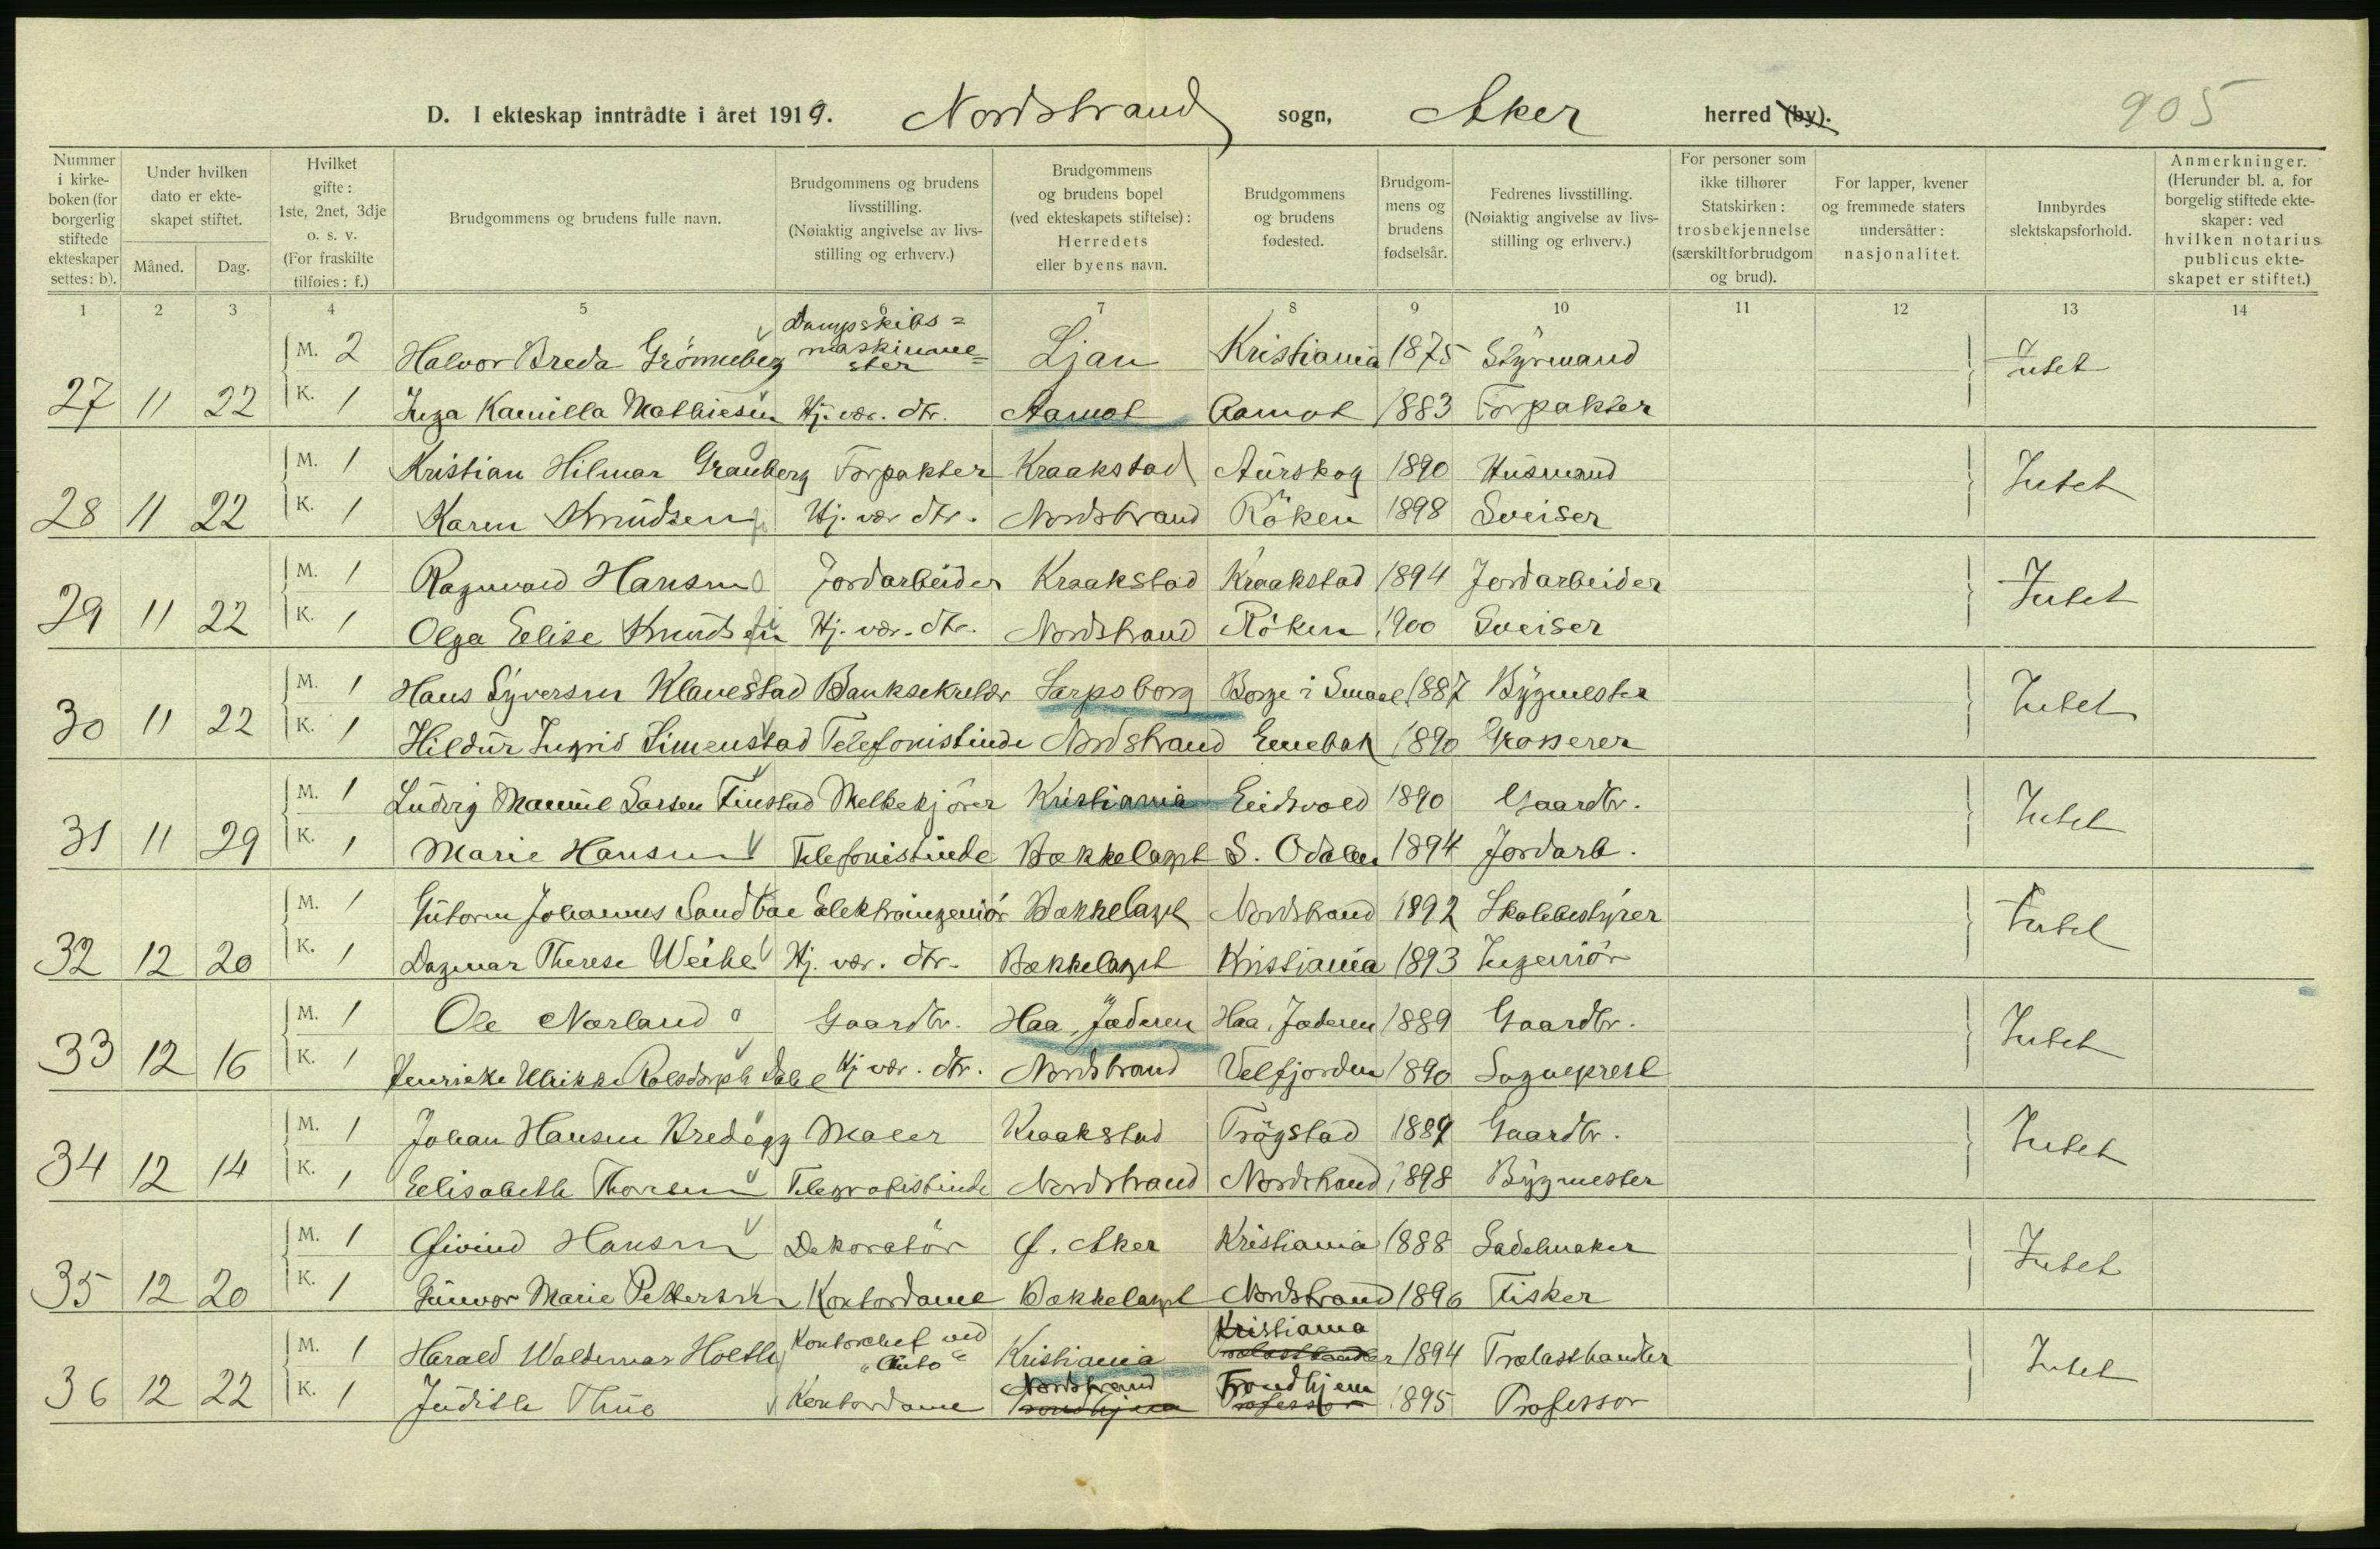 D. I ekteskap inntrådte i året 1919. Nordstrand sogn, Aker herred (by). 905
Nummer i kirkeboken (for borgerlig stiftede ekteskaper settes: b).
Under hvilken dato er ekteskapet stiftet.
Måned. Dag.
Hvilket gifte: 1ste, 2net, 3dje o. s. v. (For fraskilte tilføies: f.)
Brudgommens og brudens fulle navn.
Brudgommens og brudens livsstilling. (Nøiaktig angivelse av livsstilling og erhverv.)
Brudgommens og brudens bopel (ved ekteskapets stiftelse): Herredets eller byens navn.
Brudgommens og brudens fødested.
Brudgommens og brudens fødselsår.
Fedrenes livsstilling. (Nøiaktig angivelse av livsstilling og erhverv.)
For personer som ikke tilhører Statskirken: trosbekjennelse (særskilt for brudgom og brud).
For lapper, kvener og fremmede staters undersåtter: nasjonalitet.
Innbyrdes slektskapsforhold.
Anmerkninger. (Herunder bl. a. for borgelig stiftede ekteskaper: ved hvilken notarius publicus ekteskapet er stiftet.)
1 2 3 4 5 6 7 8 9 10 11 12 13 14
M. 2 Halvor Breda Grönneberg Dampskibs=maskinme=ster Ljan Kristiania 1875 Styrmand Intet
27 11 22 K. 1 Inga Kamilla Mathiesen Hj. vær. dtr. Aamot Aamot 1883 Forpakter
M. 1 Kristian Hilmar Granberg Forpakter Kraakstad Aurskog 1890 Husmand Intet
28 11 22 K. 1 Karen Knudsen Hj. vær dtr. Nordstrand Röken 1898 Sveiser
M. 1 Ragnvald Hansen Jordarbeider Kraakstad Kraakstad 1894 Jordarbeider Intet
29 11 22 K. 1 Olga Elise Knudsen Hj. vær. dtr. Nordstrand Röken 1900 Sveiser
M. 1 Hans Syversen Klavestad Banksekretær Sarpsborg Borge i Smaal. 1887 Bygmester Intet
30 11 22 K. 1 Hildur Ingrid Simenstad Telefonistinde Nordstrand Enebak 1890 Grosserer
M. 1 Ludvig Manuel Larsen Finstad Melkekjörer Kristiania Eidsvold 1890 Gaardbr. Intet
31 11 29 K. 1 Marie Hansen Telefonistinde Bækkelaget S. Odalen 1894 Jordarb.
M. 1 Gutorm Johannes Sandbæ Elektroingeniör Bækkelaget Nordstrand 1892 Skolebestyrer Intet
32 12 20 K. 1 Dagmar Therese Weihe Hj. vær. dtr. Bækkelaget Kristiania 1893 Ingeniör
M. 1 Ole Nærland Gaardbr. Haa, Jæderen Haa, Jæderen 1889 Gaardbr. Intet
33 12 16 K. 1 Henrikke Ulrikke Rolsdorph Dahl Hj vær. dtr. Nordstrand Velfjorden 1890 Sogneprest
M. 1 Johan Hansen Bredegg Maler Kraakstad Trögstad 1889 Gaardbr. Intet
34 12 14 K. 1 Elisabeth Thoresen Telegrafistinde Nordstrand Nordstrand 1898 Bygmester
M. 1 Öivind Hansen Dekoratör Ö. Aker Kristiania 1888 Sadelmaker Intet
35 12 20 K. 1 Gunvor Marie Pettersen Kontordame Bækkelaget Nordstrand 1896 Fisker
M. 1 Harald Waldemar Holth Kontorchef ved "Auto" Kristiania Kristiania 1894 Trælasthandler Intet
36 12 22 K. 1 Judith Thue Kontordame Nordstrand Trondhjem 1895 Professor